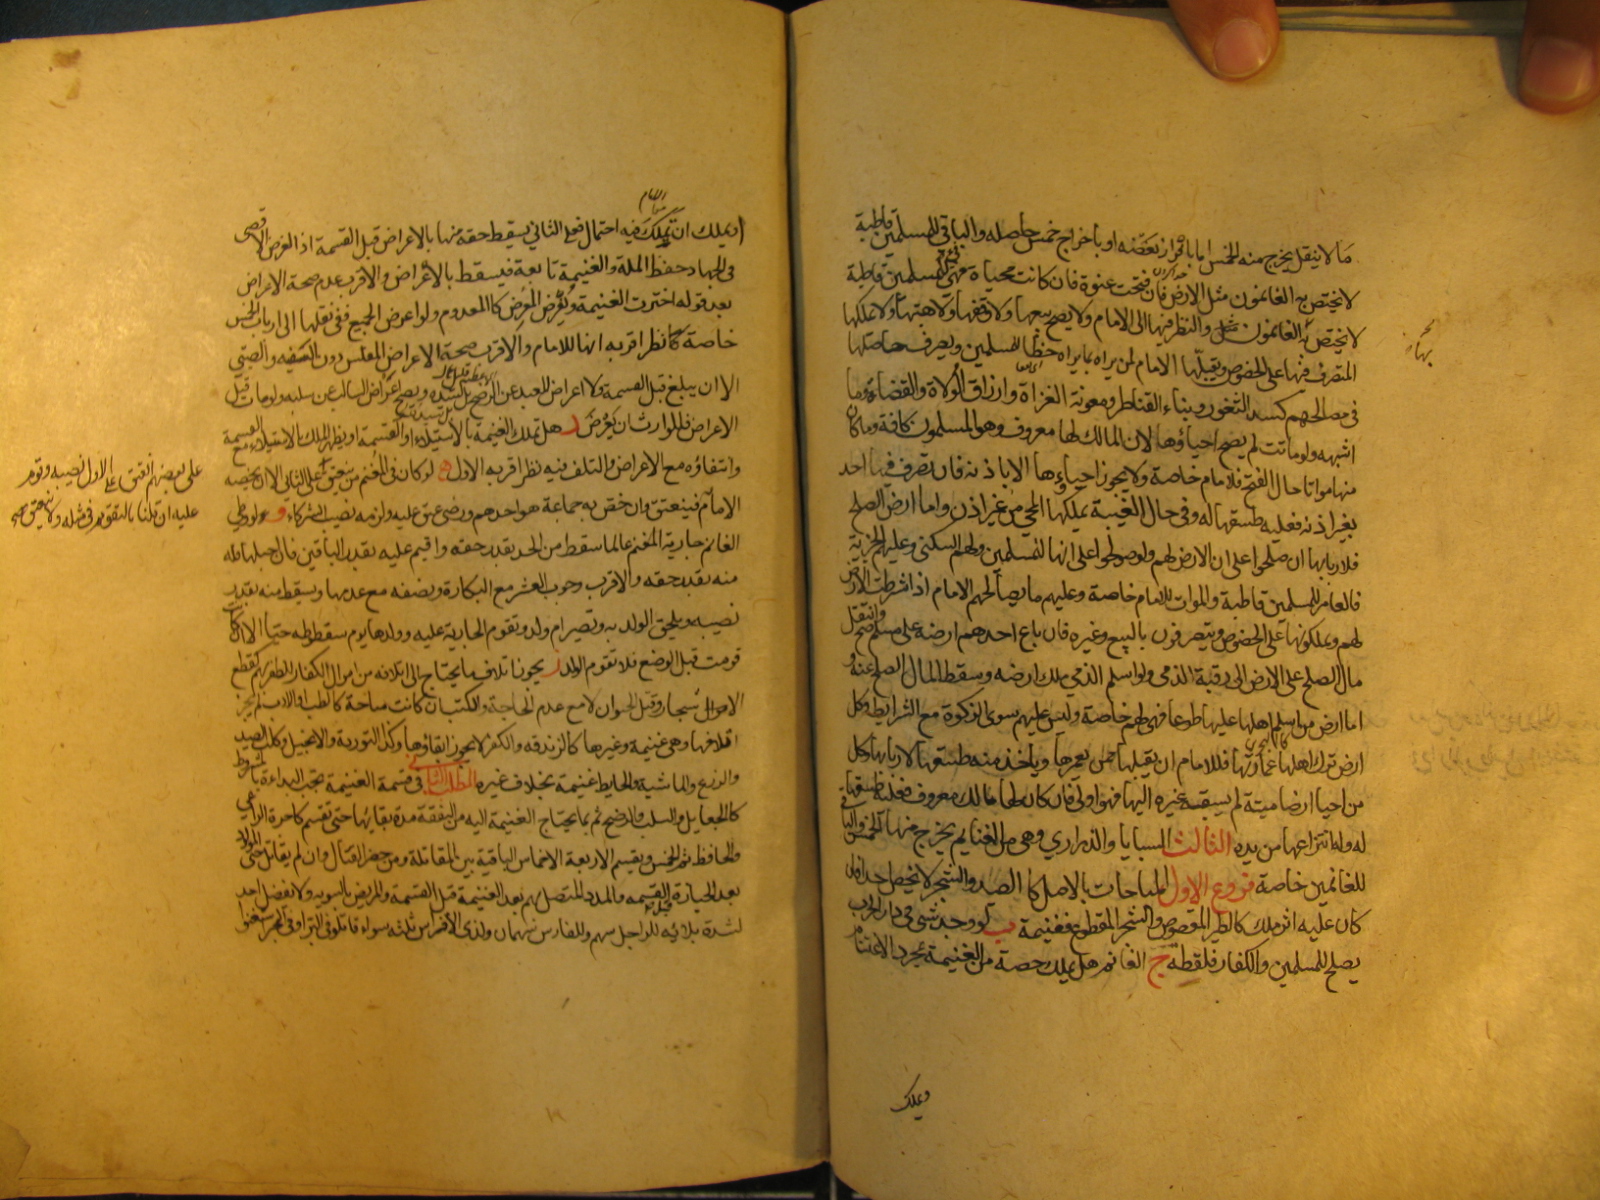 ما لا ينقل يخرج منه الخمس اما بافراز بعضه او باخراج خمس حاصله والباقى للمسلمين قاطبة
لا يختص به الغانمون مثل الارض فان فتحت عنوة فان كانت محياة فهى للمسلمين قاطبة
لا يختص بها الغانمون والنظر فيها الى الامام ولا يصح بيعها ولا وقفها ولا هبتها ولا يملكها
المتصرف فيها على الخصوص ويقبلها الامام لمن يراه بما يراه حظا للمسلمين ويصرف حاصلها
فى مصالحهم كسد الثغور وبناء القناطر ومعونة الغزاة وارزاق الولاة والقضاة وما
اشبهه ولو ماتت لم يصح احياؤها لان المالك لها معروف وهو المسلمون كافة وما كان
منها مواتا حال الفتح فللامام خاصة ولا يجوز احياؤها الا باذنه فان تصرف فيها احد
بغير اذنه فعليه طسقها له وفى حال الغيبة يملكها المحيى من غير اذن واما ارض الصلح
فلاربابها ان صولحوا على ان الارض لهم ولو صولحوا على انها للمسلمين ولهم السكنى وعليهم الجزية
فالعامر للمسلمين قاطبة والموات للامام خاصة وعليهم ما يصالحهم الامام اذا شرطت الارض
لهم ويملكونها على الخصوص ويتصرفون بالبيع وغيره فان باع احدهم ارضه على مسلم صح وانتقل
مال الصلح على الارض الى رقبة الذمى ولو اسلم الذمى ملك ارضه وسقط المال الصلح عنه و
اما ارض من اسلم اهلها عليها طوعا فهى لهم خاصة وليس عليهم سوى الزكوة مع الشرايط وكل
ارض ترك اهلها عمارتها فللامام ان يقبلها ممن يعمرها وياخذ منه طسقها لاربابها وكل
من احيا ارضا ميتة لم يسبقه غيره اليها فهو اولى فان كان لها مالك معروف فعليه طسقها
له وله انتزاعها من يده الثالث السبايا والذرارى وهى من الغنايم يخرج منها الخمس والباقى
للغانمين خاصة فروع الاول المباحات بالاصل كالصيد والشجر لا تختص
كان عليه اثر ملك كالطير المقصوص والشجر المقطوع فغنيمة ب لو وجد شى فى دار الحرب
يصلح للمسلمين والكفار فلقطه ج الغانم هل يملك حصة من الغنيمة بمجرد الاغتنام
ويملك
او يملك ان تملك فيه احتمال فعلى الثانى يسقط حقه منها بالاعراض قبل القسمة اذ الغرض الاقصى
فى الجهاد حفظ الملة والغنيمة تابعة فيسقط بالاعراض والاقرب عدم صحة الاعراض
بعد قوله اخترت الغنيمة ويفرض المعرض كالمعدوم ولو اعرض الجميع ففى نقلها الى ارباب الخمس
خاصة نظر اقربه انها للامام والاقرب صحة الاعراض المفلس دون السفيه والصبى
الا ان يبلغ قبل القسمة ولا اعراض للعبد عن الرضخ بل لسيده ويصح اعراض السالب عن سلبه ولو مات قبل
الاعراض فللوارث ان يعرض د هل تملك الغنيمة بالاستيلاء او القسمة او يظهر الملك بالاستيلاء مع القسمة
وانتفاؤه مع الاعراض والتلف فيه نظر اقربه الاول ه لو كان فى المغنم من ينعتق على الثانى الا ان يخصه
الامام فينعتق وان خص به جماعة هو احدهم ورضى عتق عليه ولزمه نصيب الشركاء و لو وطى
الغانم جارية المغنم عالما سقط من الحد بقدر حقه واقيم عليه بقدر الباقين فان احبلها فله
منه بقدر حقه والاقرب وجوب العشر مع البكارة ونصفه مع عدمها ويسقط منه بقدر
نصيبه ويلحق الولد به وتصير ام ولد وتقوم الجارية عليه وولدها يوم سقوطه حيا الا ان كانت
قومت قبل الوضع فلا تقوم الولد ز يجوز اتلاف ما يحتاج الى اتلافه من اموال الكفار للظفر بهم كقطع
الاشجار وقتل الحيوان لا مع عدم الحاجة والكتب ان كانت مباحة كالطب والادب لم يجز
اتلافها وهى غنيمة وغيرها كالزندقه والكفر لا يجوز ابقاؤها وكذا التورية والانجيل وكلب الصيد
والزرع والماشية والحايط غنيمة بخلاف غيره المطلب الثانى فى قسمة الغنيمة تجب البداءة بالشروط
كالجعايل والسلب والرضخ ثم بما يحتاج الغنيمة اليه من النفقة مدة بقايها حتى تقسم كاجرة الراعى
والحافظ ثم الخمس ويقسم الاربعة الاخماس الباقية بين المقاتلة ومن حضر القتال وان لم يقاتل حتى المولود
بعد الحيازة قبل القسمه والمدد المتصل بهم بعد الغنيمة قبل القسمة والمريض بالسوية ولا يفضل احد
لشدة بلائه للراجل سهم وللفارس سهمان ولذى الافراس ثلثه سواء قاتلوا فى البر او فى البحر استغنوا
على بعضهم انعتق على الاول نصيبه وقوم
عليه ان قلنا بالتقويم فى مثله ولا ينعتق صح